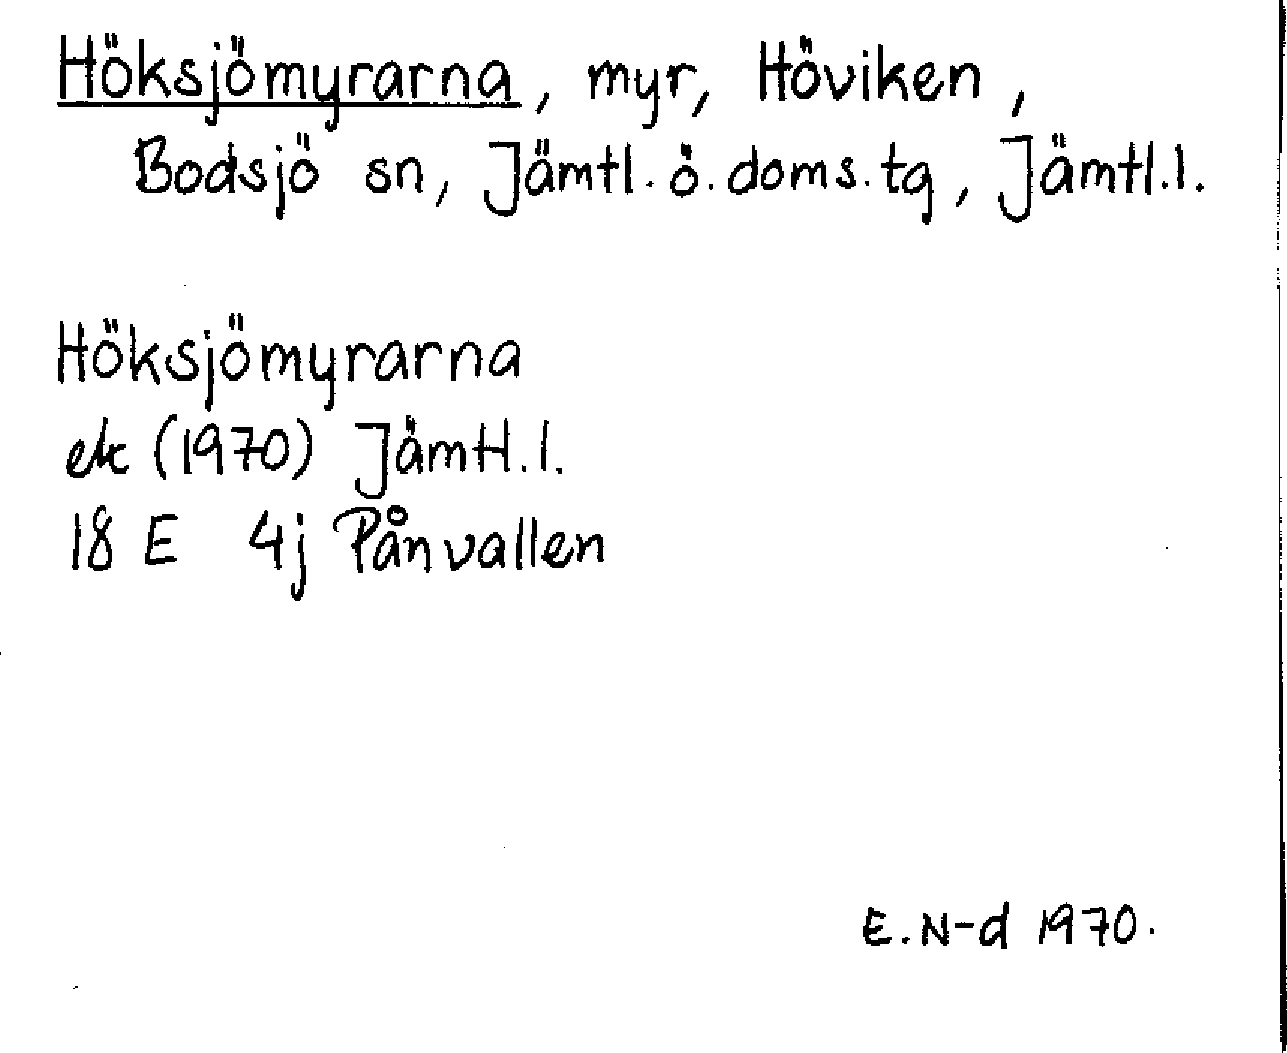 Höksjömyrarna, myr, Höviken,
Bodsjö sn, Jämtl. ö. doms. tg, Jämtl.l.
Höksjömyrarna
ek (1970) Jämtl.l.
18 E 4j Pånvallen
E. N-d 1970.